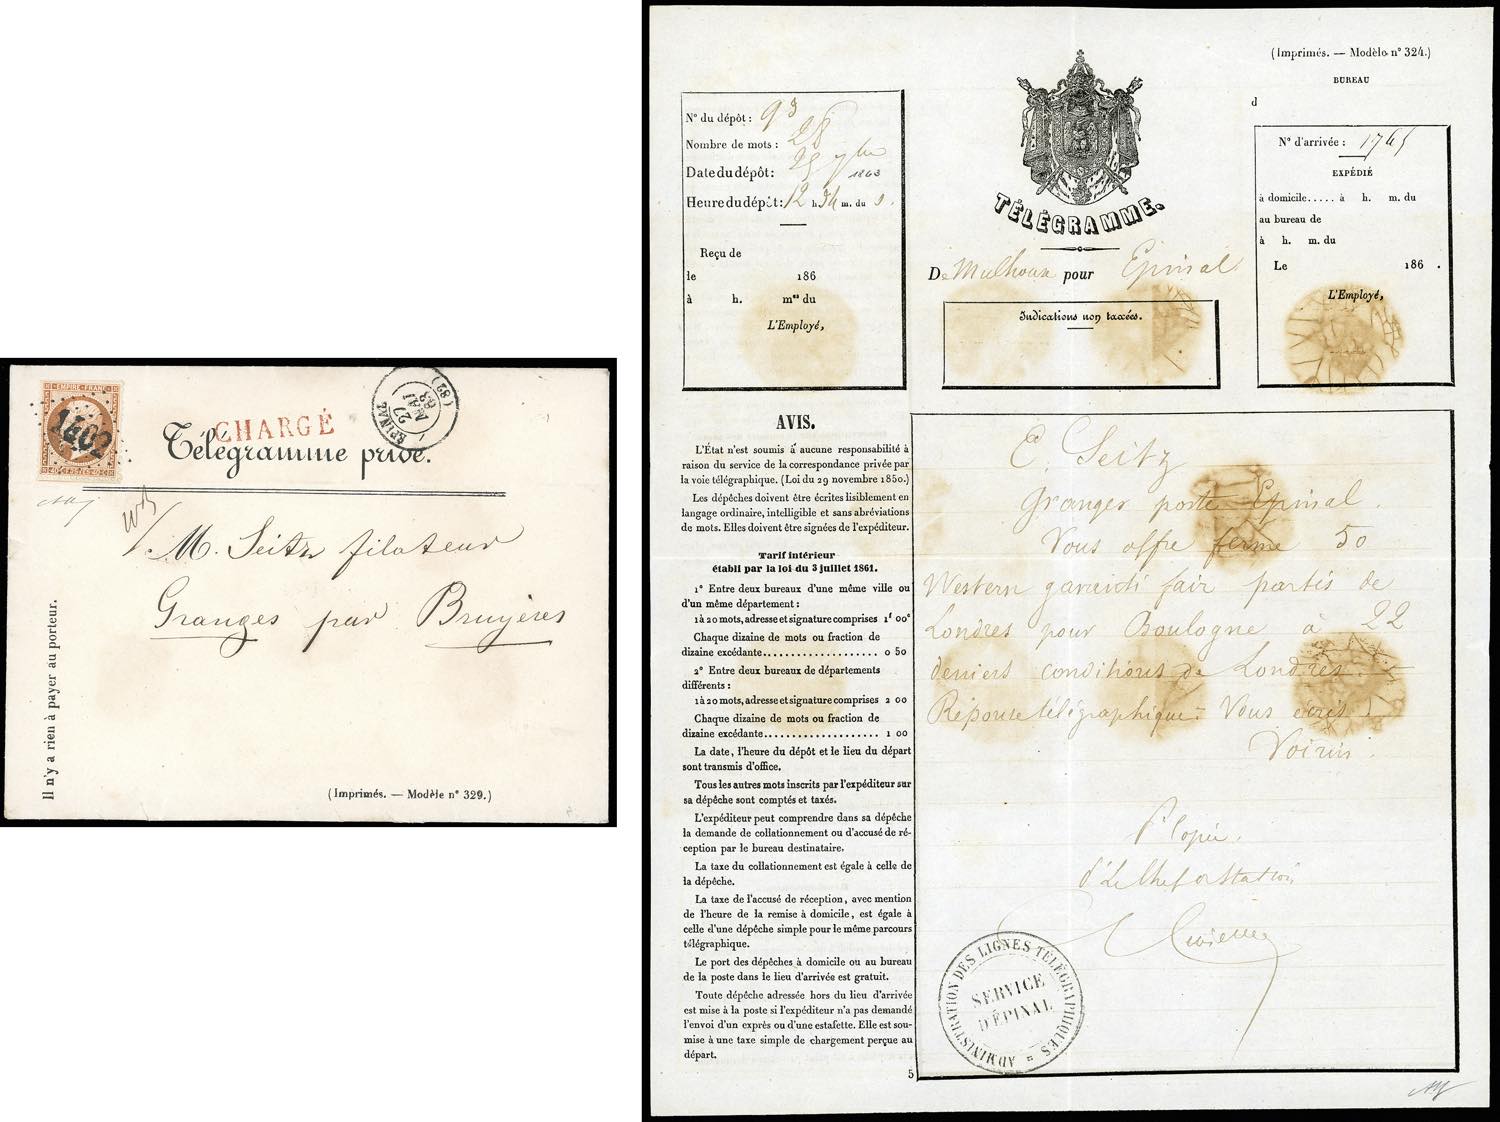 EMPIRE FRANC
40 C POSTES 40 C
1402
CHARGÉ
Télégramme privé.
EPINAL
27
MAI
63
(82)
M. Seitz filateur
Granges par Bruyères
Il n'y a rien à payer au porteur.
(Imprimés. — Modèle n° 329.)
(Imprimés. — Modèle n° 324.)
BUREAU
d
N° du dépôt : 93
Nombre de mots : 28
Date du dépôt : 25 1863
Heure du dépôt : 12 h 54 m. du s.
Reçu de
le 186
à h. mes du
L'Employé,
TÉLÉGRAMME.
De Mulhouse pour Epinal
Indications non taxées.
N° d'arrivée : 1765
EXPÉDIÉ
à domicile..... à h. m. du
au bureau de
à h. m. du
Le 186 .
L'Employé,
AVIS.
L'État n'est soumis à aucune responsabilité à
raison du service de la correspondance privée par
la voie télégraphique. (Loi du 29 novembre 1850.)
Les dépêches doivent être écrites lisiblement en
langage ordinaire, intelligible et sans abréviations
de mots. Elles doivent être signées de l'expéditeur.
Tarif intérieur
établi par la loi du 3 juillet 1861.
1° Entre deux bureaux d'une même ville ou
d'un même département :
1 à 20 mots, adresse et signature comprises 1f 00c
Chaque dizaine de mots ou fraction de
dizaine excédante................... 0 50
2° Entre deux bureaux de départements
différents :
1 à 20 mots, adresse et signature comprises 2 00
Chaque dizaine de mots ou fraction de
dizaine excédante................... 1 00
La date, l'heure du dépôt et le lieu du départ
sont transmis d'office.
Tous les autres mots inscrits par l'expéditeur sur
sa dépêche sont comptés et taxés.
L'expéditeur peut comprendre dans sa dépêche
la demande de collationnement ou d'accusé de ré-
ception par le bureau destinataire.
La taxe du collationnement est égale à celle de
la dépêche.
La taxe de l'accusé de réception, avec mention
de l'heure de la remise à domicile, est égale à
celle d'une dépêche simple pour le même parcours
télégraphique.
Le port des dépêches à domicile ou au bureau
de la poste dans le lieu d'arrivée est gratuit.
Toute dépêche adressée hors du lieu d'arrivée
est mise à la poste si l'expéditeur n'a pas demandé
l'envoi d'un exprès ou d'une estafette. Elle est sou-
mise à une taxe simple de chargement perçue au
départ.
5
E. Seitz
Granger poste Epinal.
Vous offre ferme 50
Western garanti fair partis de
Londres pour Boulogne à 22
deniers conditions de Londres.
Réponse télégraphique. Vous écris.
Pr Copie
Le Chef de Station
ADMINISTRATION DES LIGNES TÉLÉGRAPHIQUES
SERVICE
D'ÉPINAL